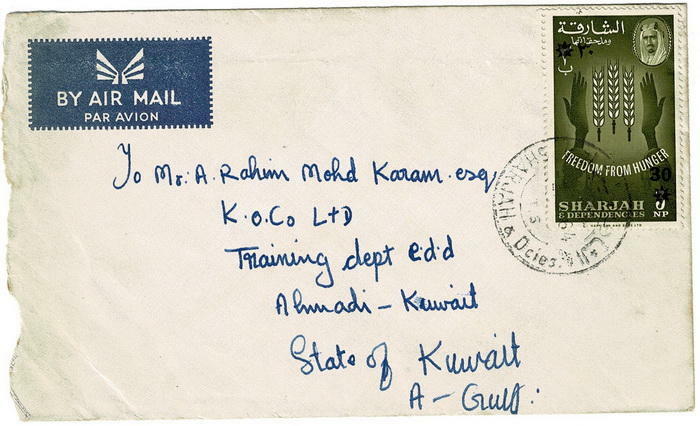 BY AIR MAIL
PAR AVION
الشارقة
وملحقاتها
٣٠
FREEDOM FROM HUNGER
30
SHARJAH
& DEPENDENCIES
NP
SHARJAH & Dcies.
To Mr. A. Rahim Mohd Karam. esq
K.O.Co LTD
Training dept e.d.d
Ahmadi - Kuwait
State of Kuwait
A - Gulf.